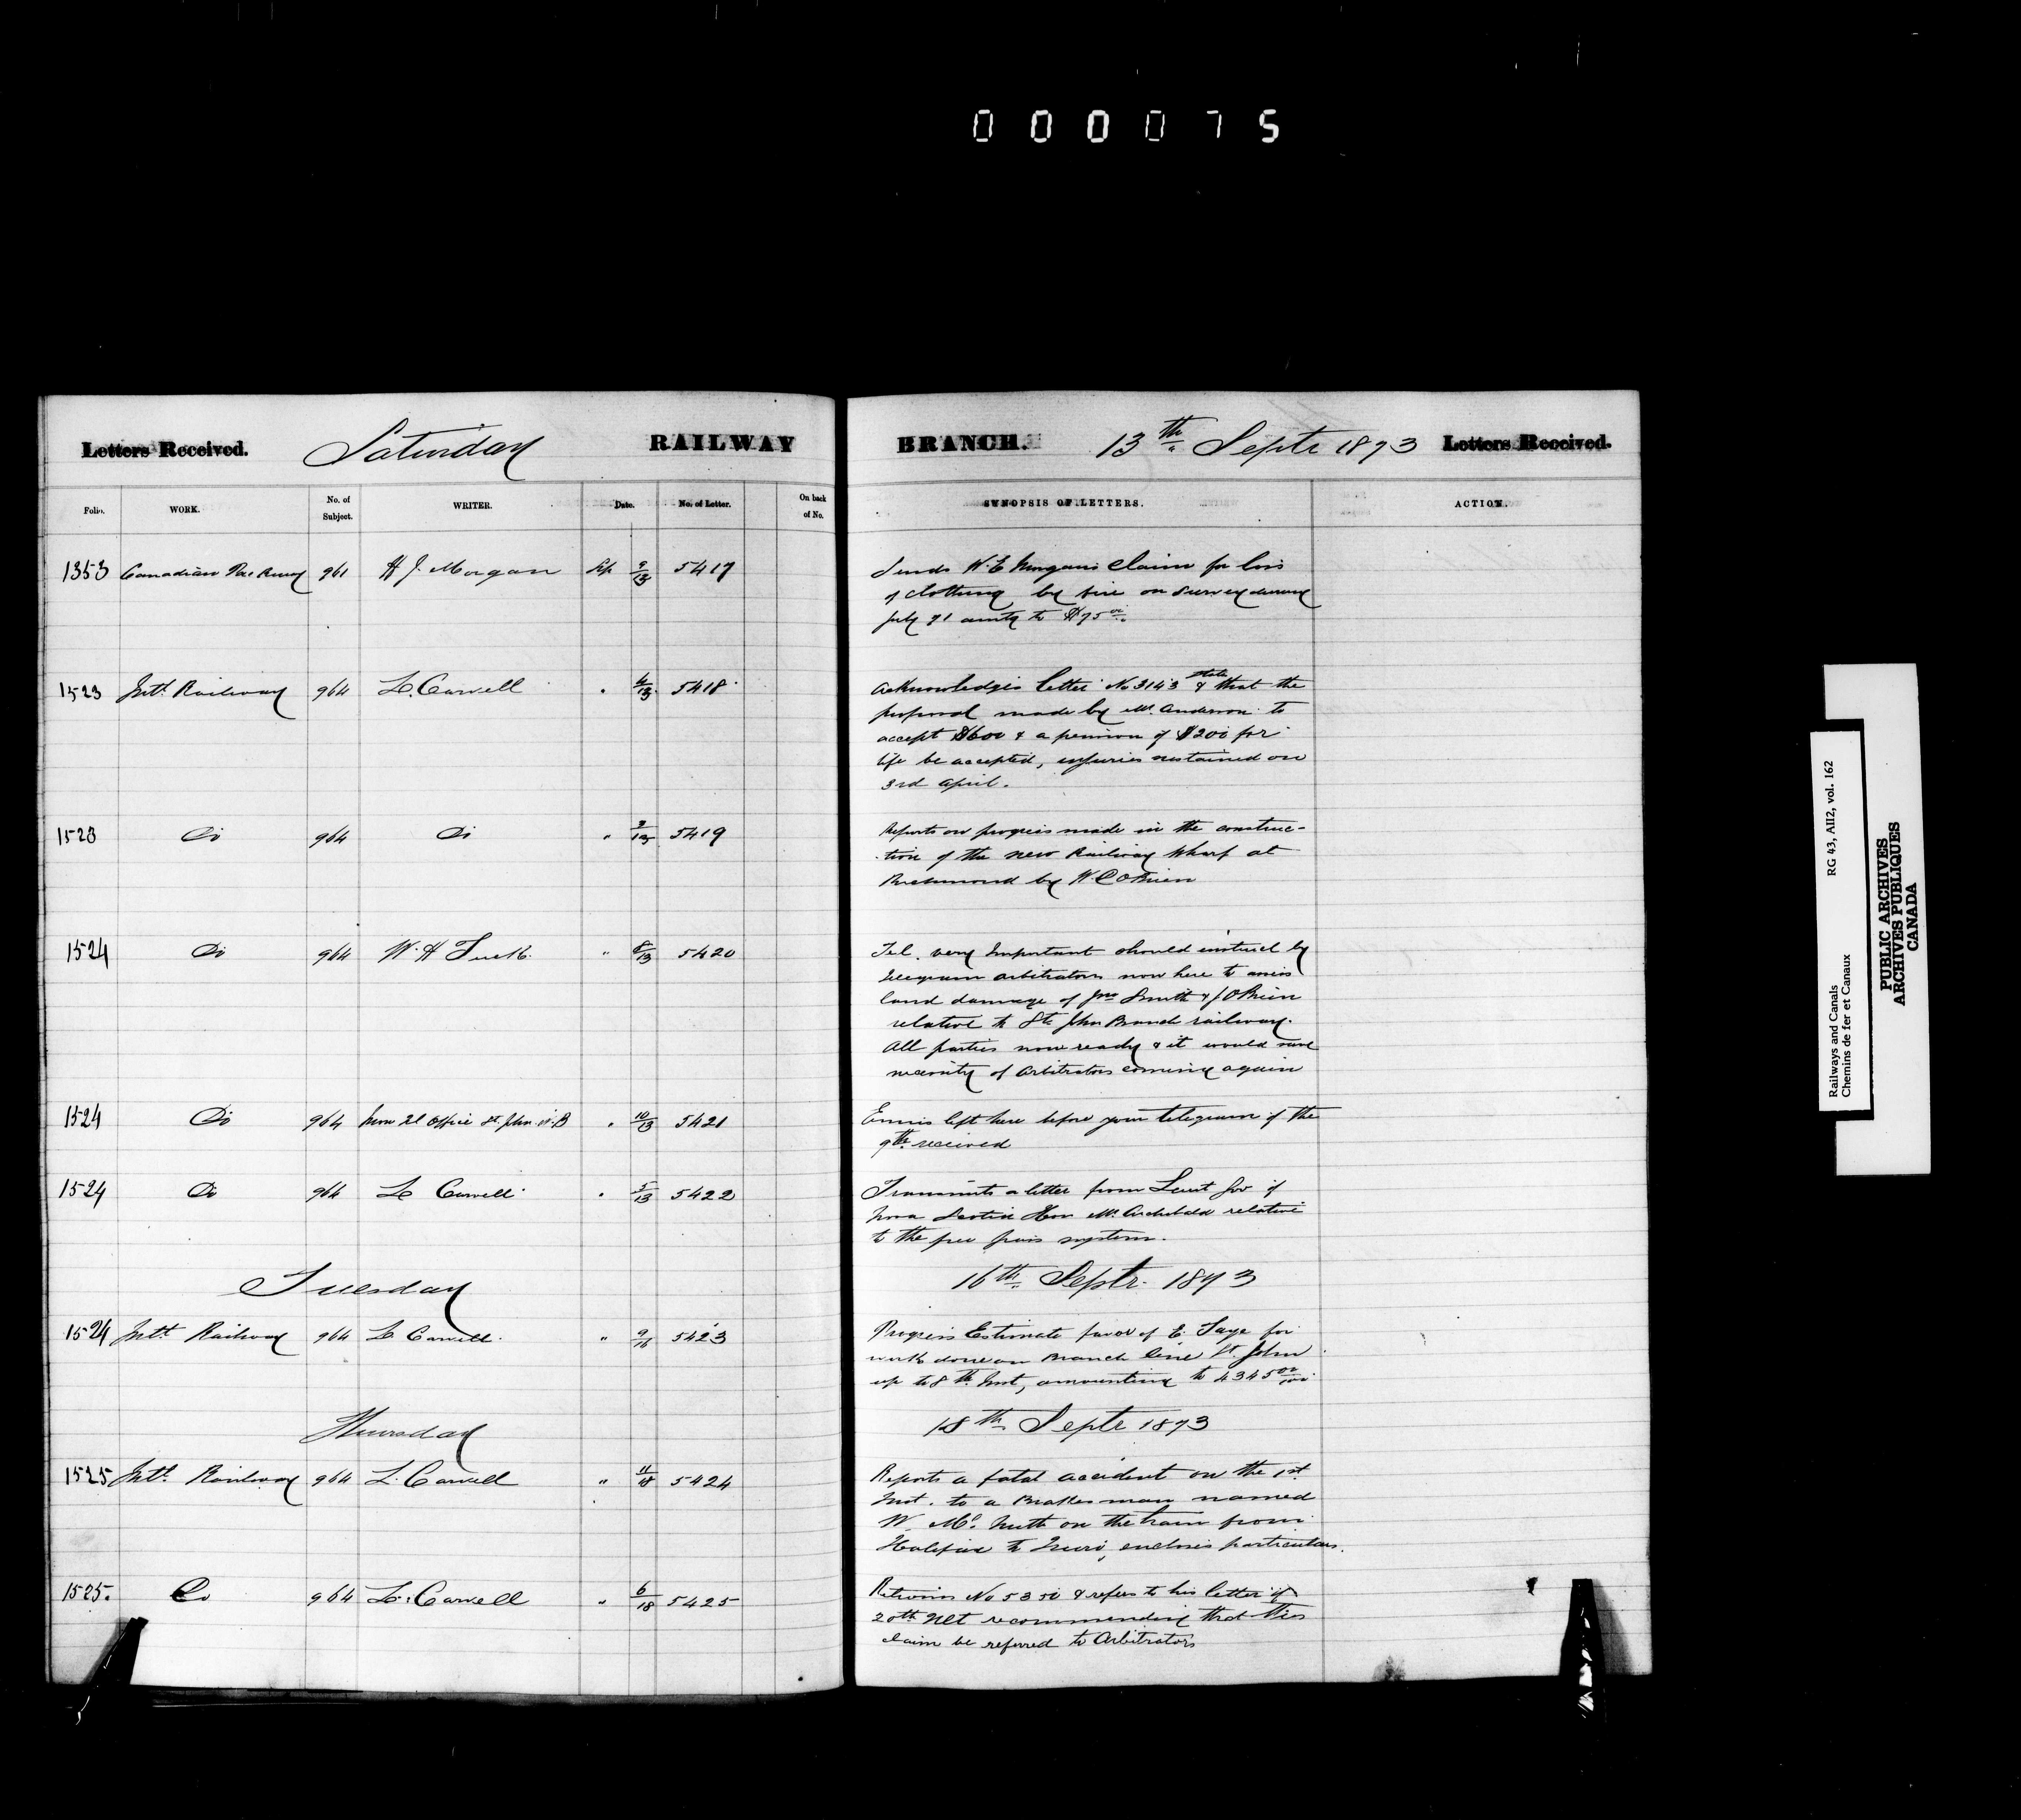 000075
Letters Received. Saturday RAILWAY BRANCH. 13th Septr 1873 Letters Received.
Folio. WORK. No. of Subject. WRITER. Date. No. of Letter. On back of No. SYNOPSIS OF LETTERS. ACTION.
1353 Canadian Pac Rway 961 H J. Morgan Sep 9/13 5417 Sends W. E Morgans Claim for loss
of clothing by fire on Survey during
July 71 amtg to $75 00
1523 Intl. Railway 964 L. Carvell " 6/13 5418 Acknowledges letter No 3143 & states that the
proposal made by Mr. Anderson to
accept $600 & a pension of $200 for
life be accepted, injuries sustained on
3rd April.
1523 Do 964 Do " 9/13 5419 Reports on progress made in the construc-
tion of the new Railway Wharf at
Richmond by W. C OBrien
1524 Do 964 W. H Tuck " 8/13 5420 Tel. very Important should instruct by
telegram arbitrators now here to assess
land damage of Jno Smith & J OBrien
relative to St John Branch railway.
All parties now ready & it would save
necessity of Arbitrators coming again
1524 Do 964 Office St. John N.B " 10/13 5421 Ennis left here before your telegram of the
9th. received
1524 Do 964 L Carvell " 5/13 5422 Transmits a letter from Lieut Gov of
Nova Scotia Hon Mr. Archibald relative
to the free pass system.
Tuesday 16th. Septr. 1873
1524 Intl Railway 964 L Carvell " 9/16 5423 Progress Estimate favor of E. for
work done on Branch line St. John
up to 8th. Inst, amounting to 4345 00/100
Thursday 18th Septr 1873
1525 Intl. Railway 964 L. Carvell " 11/18 5424 Reports a fatal accident on the 1st
Inst. to a Brakesman named
W. Mc. on the train from
Halifax to Truro, encloses particulars.
1525. Do 964 L. Carvell " 6/18 5425 Returns No 5350 & refers to his letter of
20th Ult recommending that this
claim be referred to Arbitrators
Railways and Canals RG 43, AII2, vol. 162
Chemins de fer et Canaux
PUBLIC ARCHIVES
ARCHIVES PUBLIQUES
CANADA